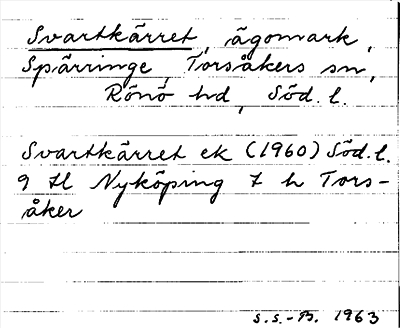 Svartkärret, ägomark,
Spärringe, Torsåkers sn,
Rönö hd, Söd. l.
Svartkärret ek (1960) Söd. l.
9 H Nyköping 7 h Tors-
åker
S.S.-B. 1963